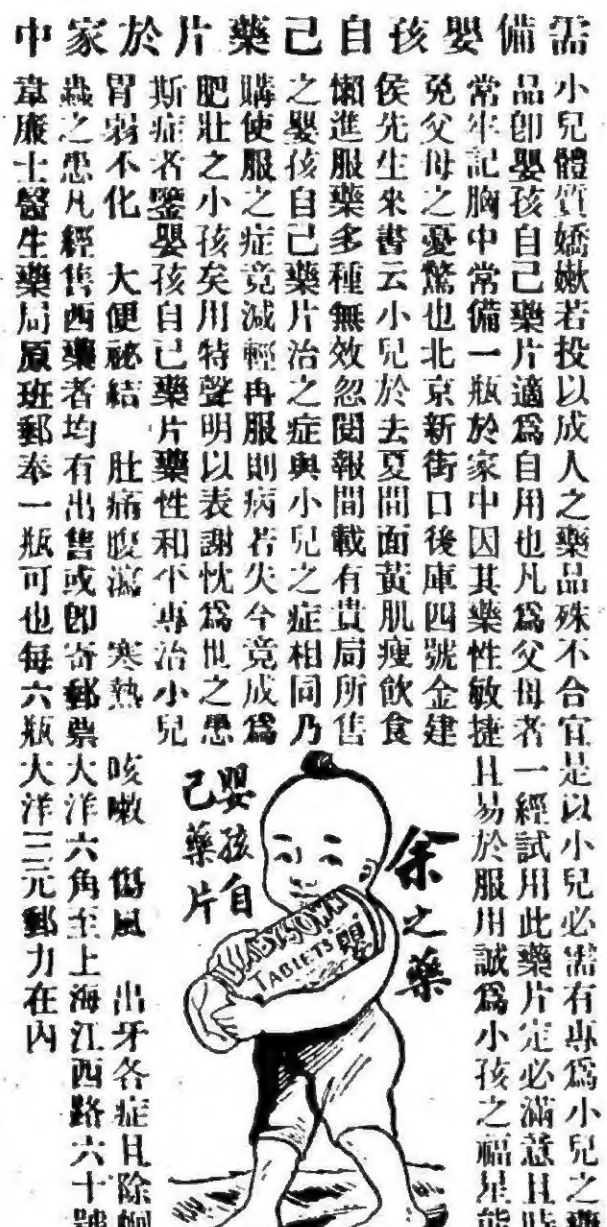 需備嬰孩自己藥片於家中
小兒體質嬌嫩若投以成人之藥品殊不合宜是以小兒必需有專爲小兒之藥
品卽嬰孩自己藥片適爲自用也凡爲父母者一經試用此藥片定必滿意且時
常牢記胸中常備一瓶於家中因其藥性敏捷且易於服用誠爲小孩之福星能
免父母之憂驚也北京新街口後庫四號金建
侯先生來書云小兒於去夏間面黃肌瘦飲食
懶進服藥多種無效忽閱報間載有貴局所售
之嬰孩自己藥片治之症與小兒之症相同乃
購使服之症竟減輕再服則病若失今竟成爲
肥壯之小孩矣用特聲明以表謝忱爲世之患
斯症者鑒嬰孩自己藥片藥性和平專治小兒
胃弱不化 大便祕結 肚痛腹瀉 寒熱 咳嗽 傷風 出牙各症且除蛔
蟲之患凡經售西藥者均有出售或卽寄郵票大洋六角至上海江西路六十號
韋廉士醫生藥局原班郵奉一瓶可也每六瓶大洋三元郵力在內
余之藥
嬰孩自
己藥片
BABY'S OWN
TABLETS
嬰